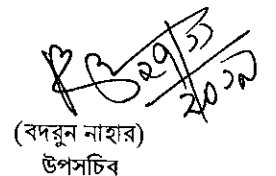 ২৭/১১
২০১৯
(বদরুন নাহার)
উপসচিব